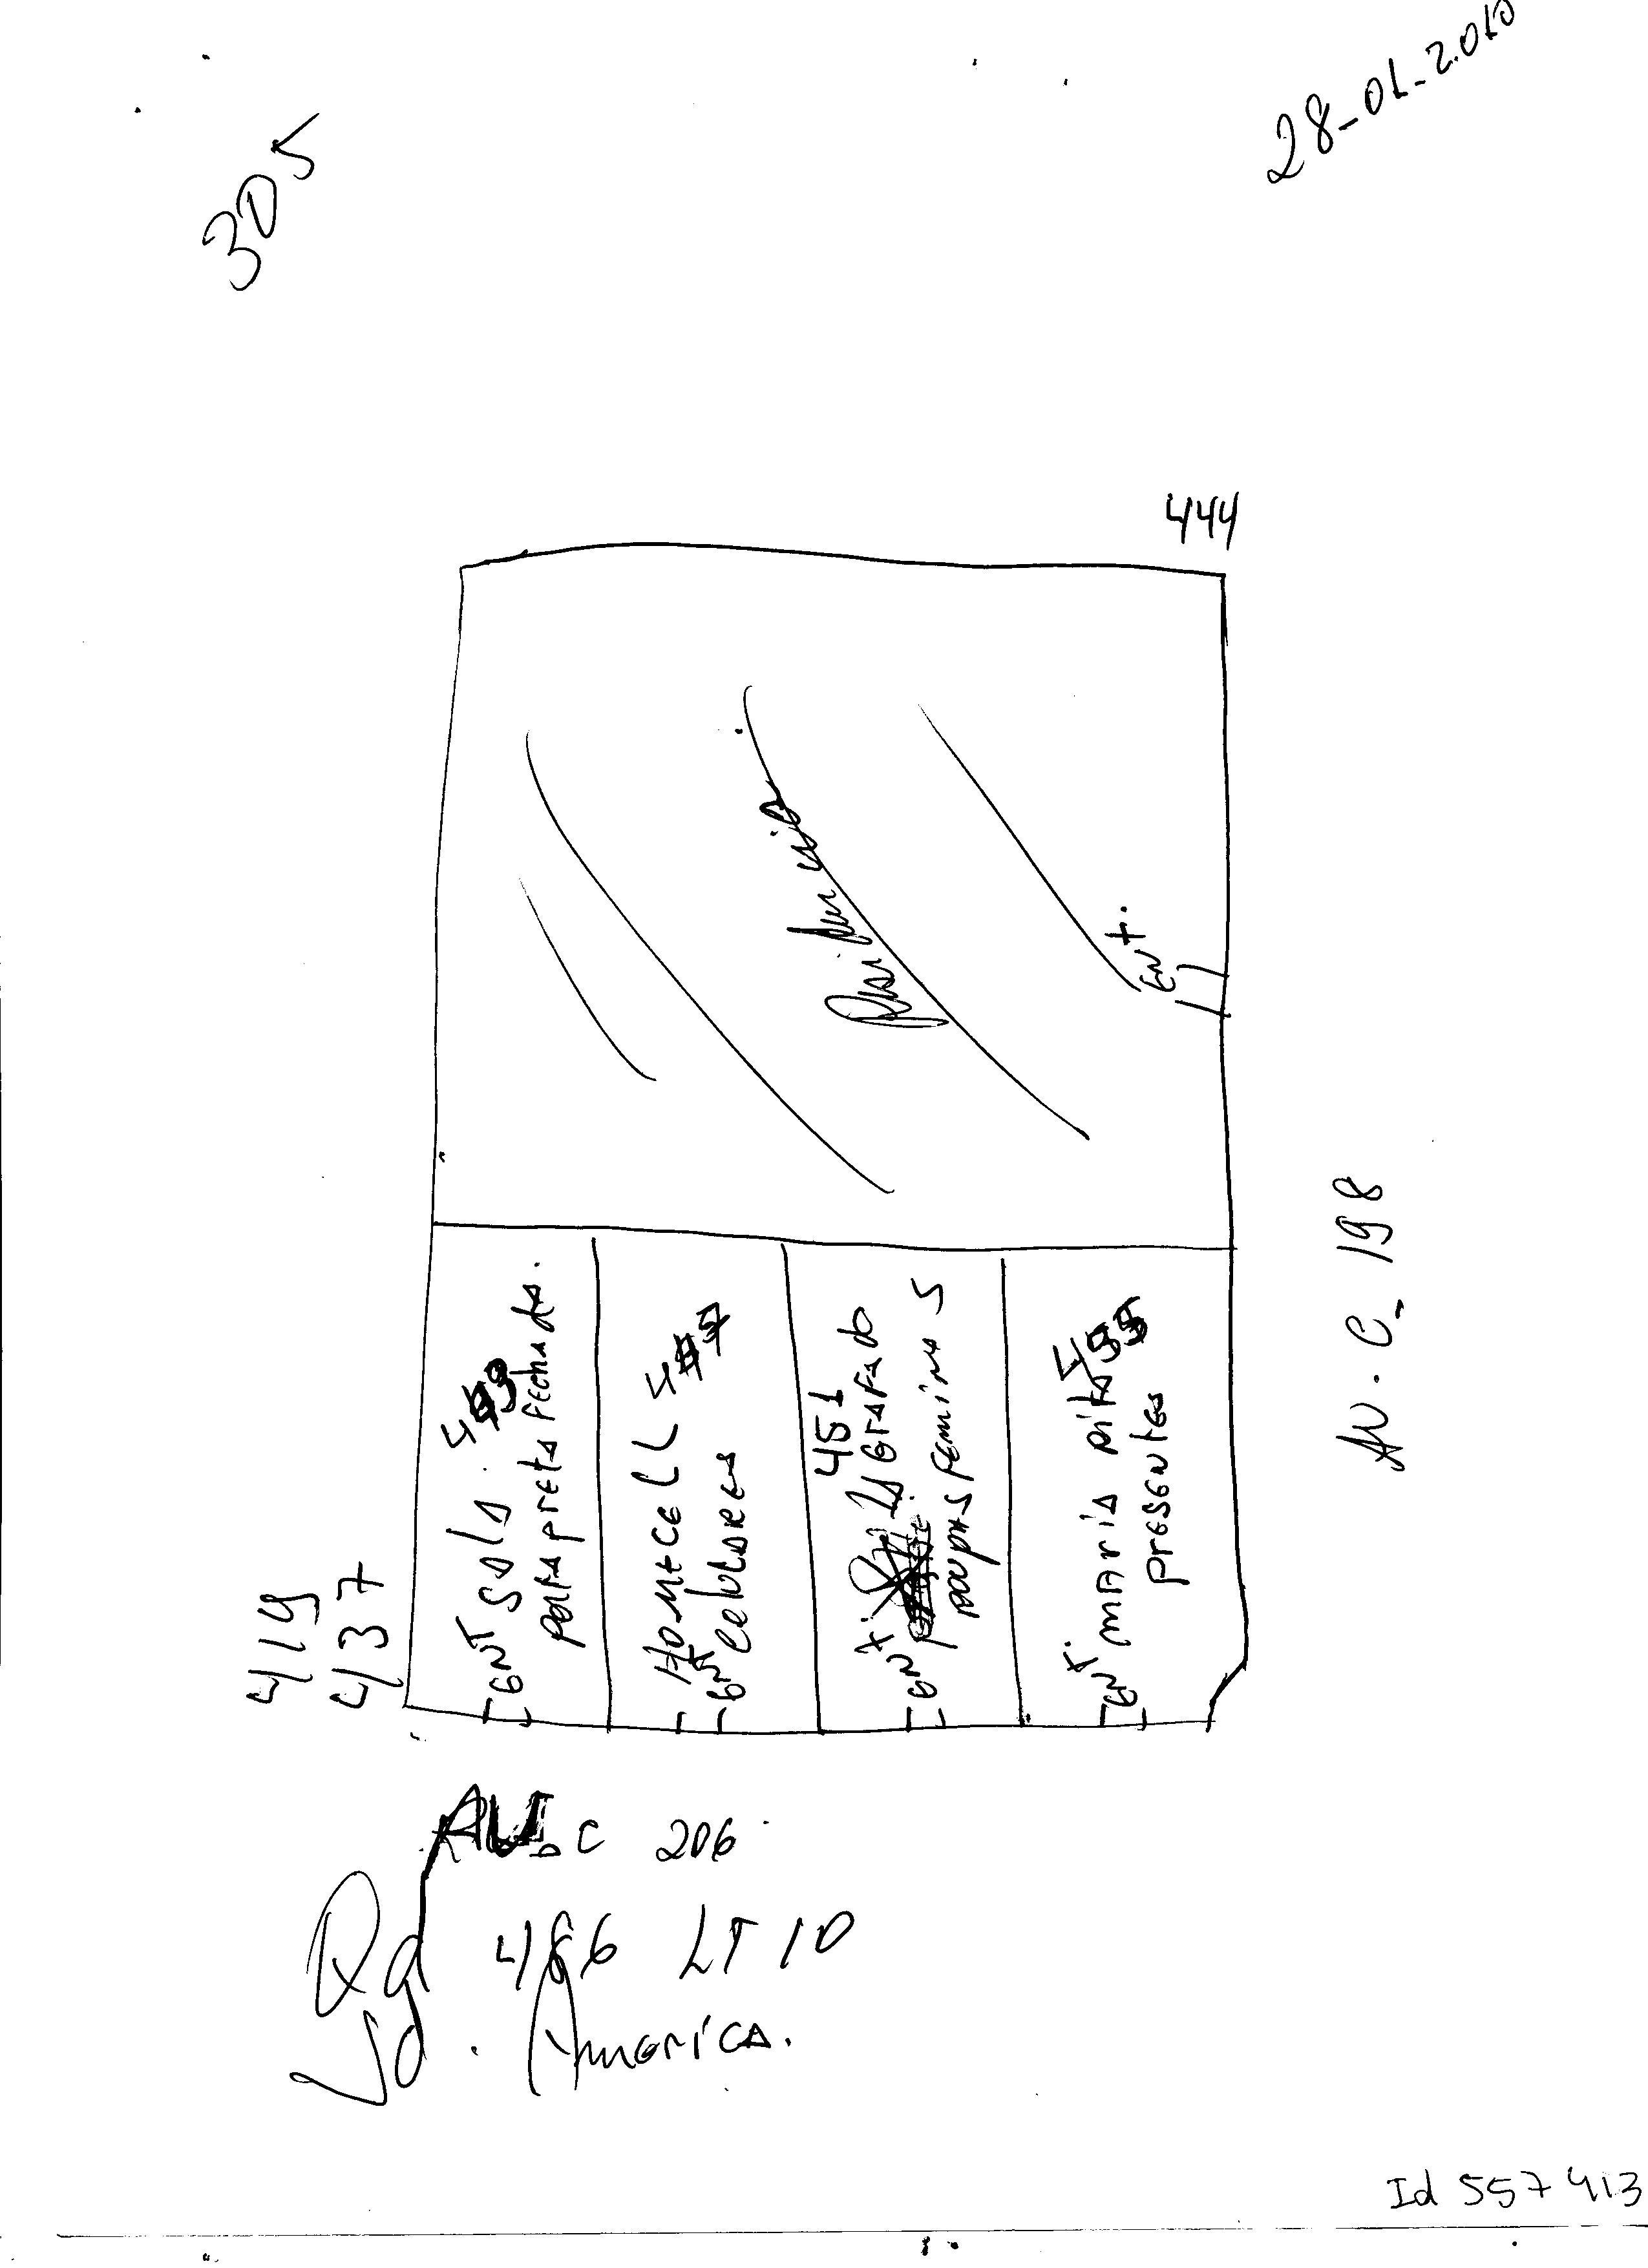 305
28-01-2.010
444
Ent.
443
ENT SALA
PORTA PRETA FECHADA.
447
HOMECELL
ENT Celulares
451
ENT
ROUPAS FEMININAS
455
ENT MARIA PITA
PRESENTES
419
437
AV. C_198
AV. C 206
Qd 486 LT 10
Jd. America.
Id 557413